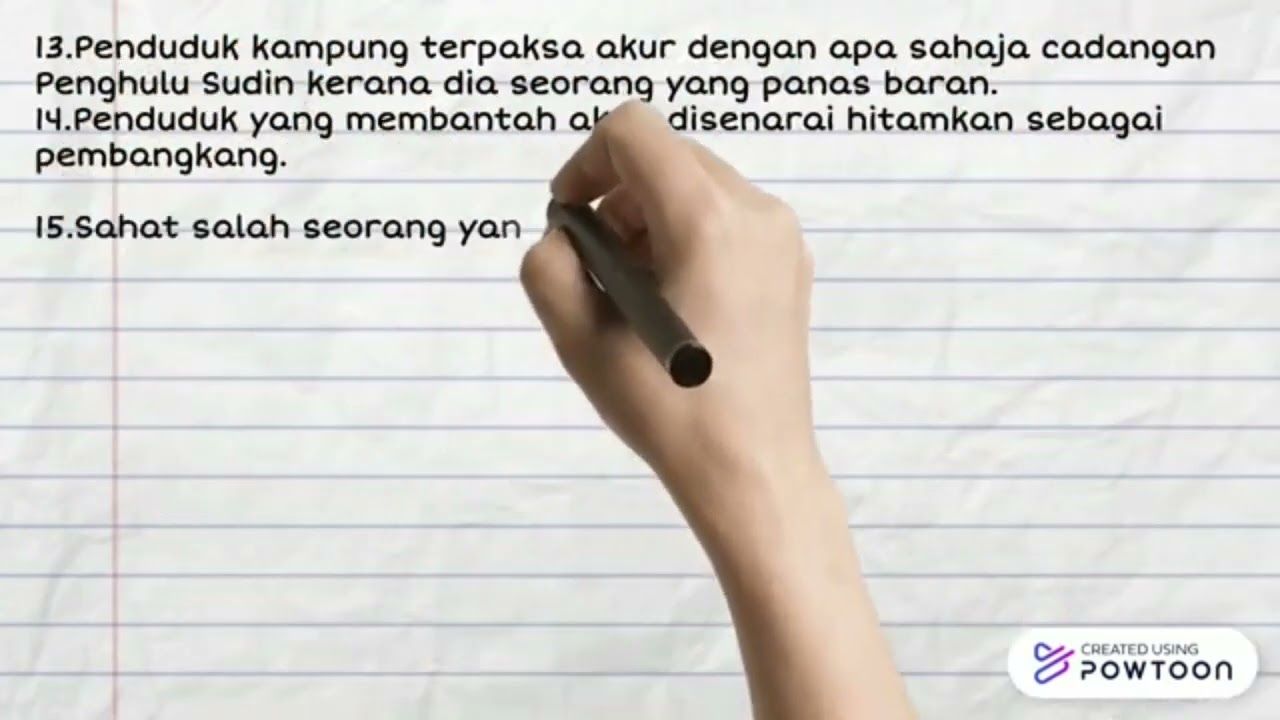 13.Penduduk kampung terpaksa akur dengan apa sahaja cadangan
Penghulu Sudin kerana dia seorang yang panas baran.
14.Penduduk yang membantah disenarai hitamkan sebagai
pembangkang.
15.Sahat salah seorang yan
CREATED USING
POWTOON